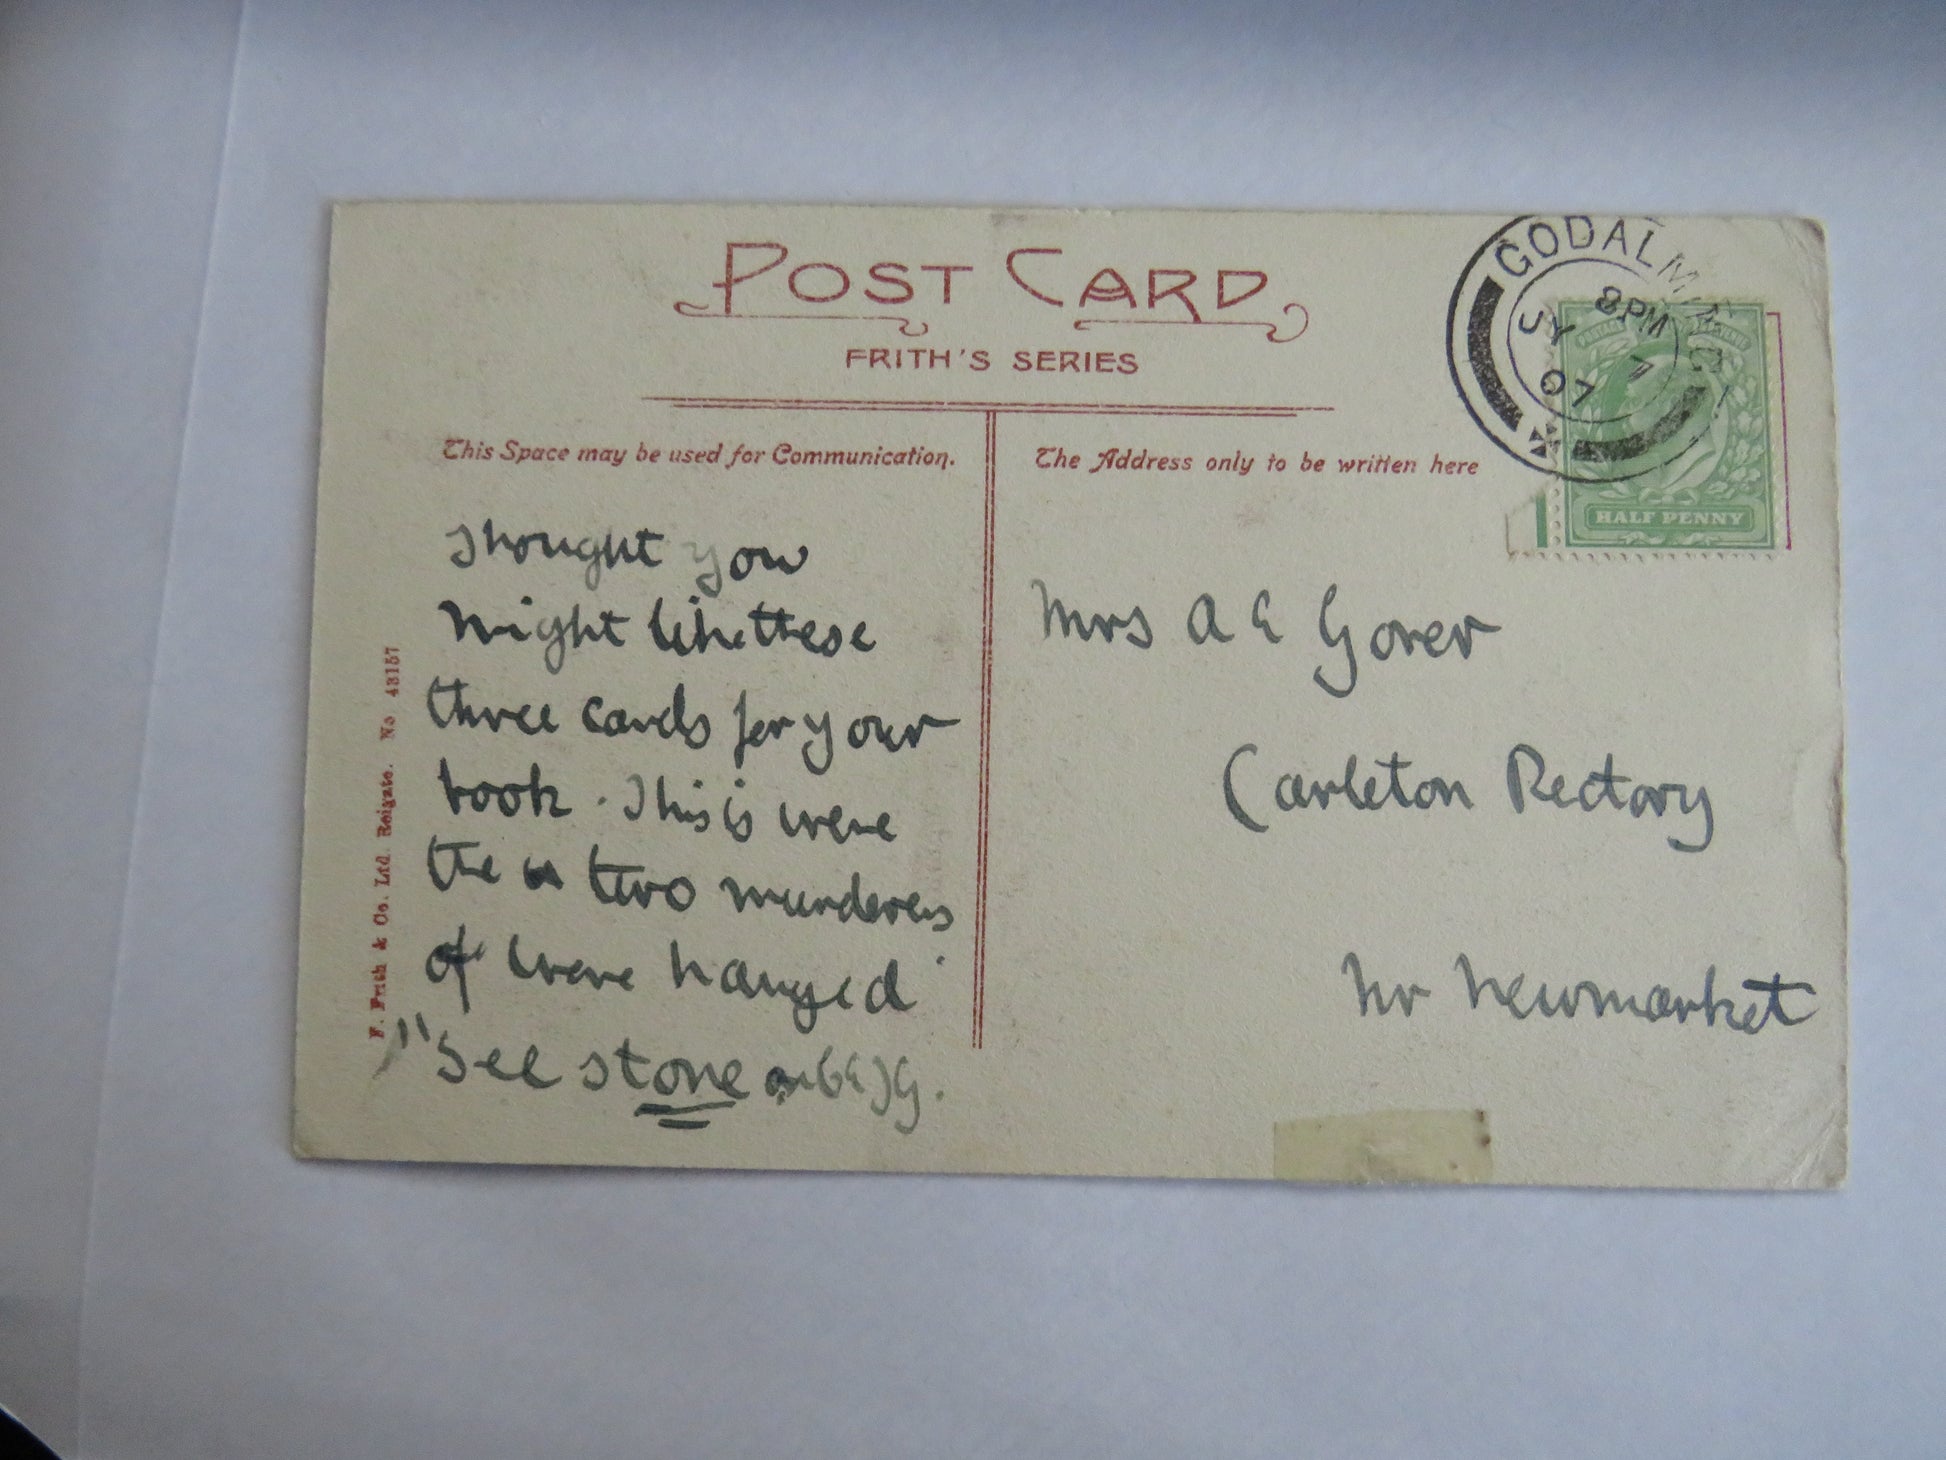 POST CARD
FRITH'S SERIES
This Space may be used for Communication.
The Address only to be written here
GODALMING
8PM
JY 7
07
HALF PENNY
Thought you
might like these
three cards for your
book. This is were
the two murderers
of were hanged
"See stone
Mrs A E Gorer
Carleton Rectory
Nr Newmarket
F. Frith & Co. Ltd. Reigate. No 43157